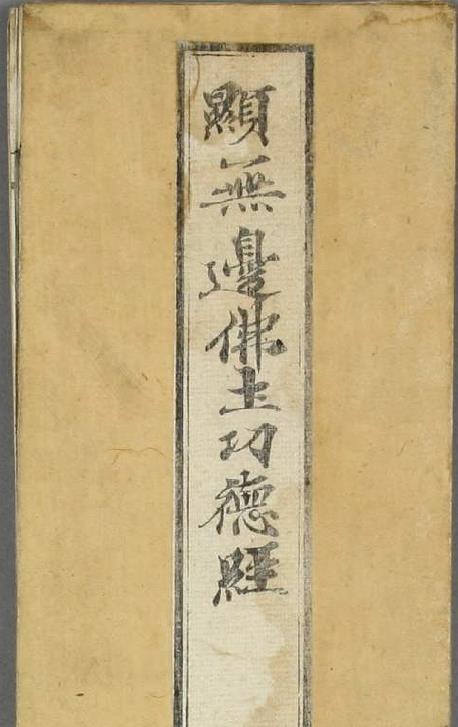 顯無邊佛土功德經